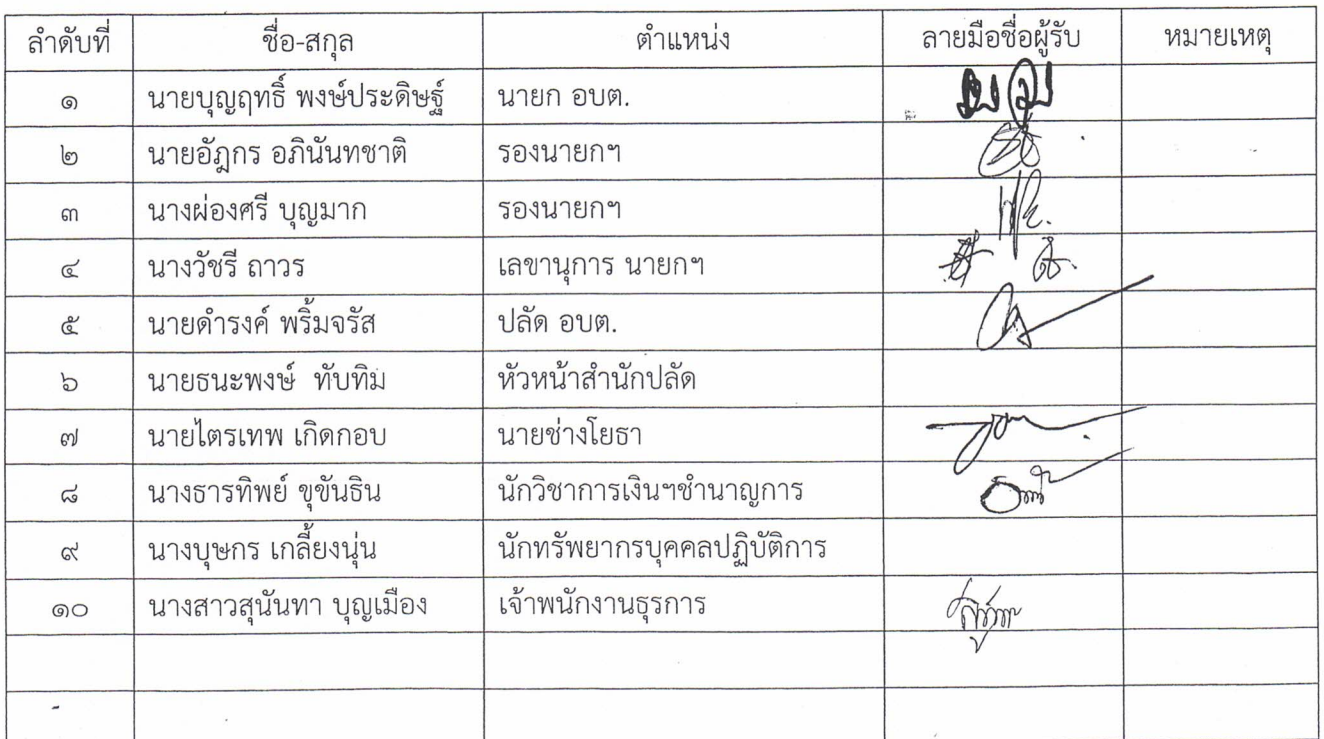 ลำดับที่ ชื่อ-สกุล ตำแหน่ง ลายมือชื่อผู้รับ หมายเหตุ
๑ นายบุญฤทธิ์ พงษ์ประดิษฐ์ นายก อบต.
๒ นายอัฎกร อภินันทชาติ รองนายกฯ
๓ นางผ่องศรี บุญมาก รองนายกฯ
๔ นางวัชรี ถาวร เลขานุการ นายกฯ
๕ นายดำรงค์ พริ้มจรัส ปลัด อบต.
๖ นายธนะพงษ์ ทับทิม หัวหน้าสำนักปลัด
๗ นายไตรเทพ เกิดกอบ นายช่างโยธา
๘ นางธารทิพย์ ขุขันธิน นักวิชาการเงินฯชำนาญการ
๙ นางบุษกร เกลี้ยงนุ่น นักทรัพยากรบุคคลปฏิบัติการ
๑๐ นางสาวสุนันทา บุญเมือง เจ้าพนักงานธุรการ